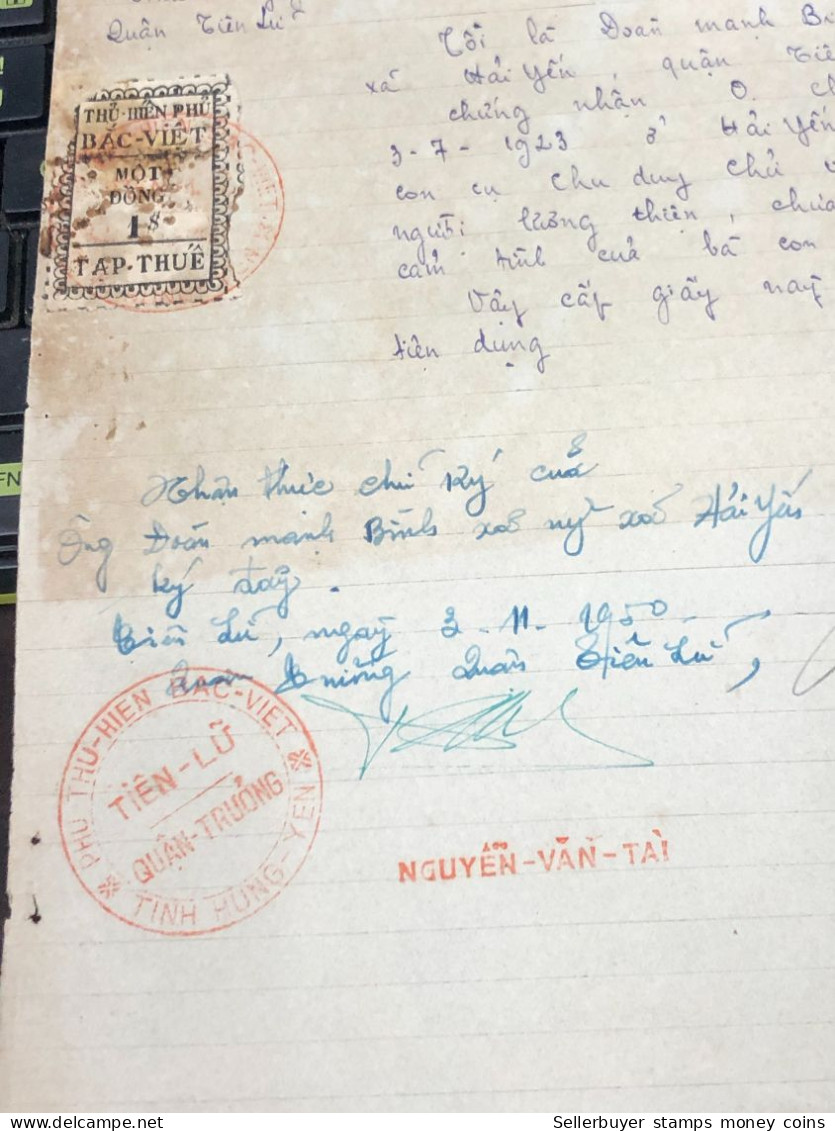 Quận Tiên Lữ
Tôi là Đoàn mạnh
xã Hải Yến, quận
chứng nhận O.
3-7-1923 ở Hải Yến
con cụ Chu duy Chử
người lương thiện, chưa
cảm tình của bà con
Vậy cấp giấy này
tiện dụng
THỦ-HIẾN PHỦ
BẮC-VIỆT
MỘT
ĐỒNG
1$
TẠP-THUẾ
Nhận thực chữ ký của
Ông Đoàn mạnh Bình xã uỷ xã Hải Yến
ký đây.
Tiên Lữ, ngày 3-11-1950
Quận Tiên Lữ,
PHỦ THỦ-HIẾN BẮC-VIỆT
TIÊN-LỮ
QUẬN-TRƯỞNG
TỈNH HƯNG-YÊN
NGUYỄN-VĂN-TÀI
delcampe.net
Sellerbuyer stamps money coins